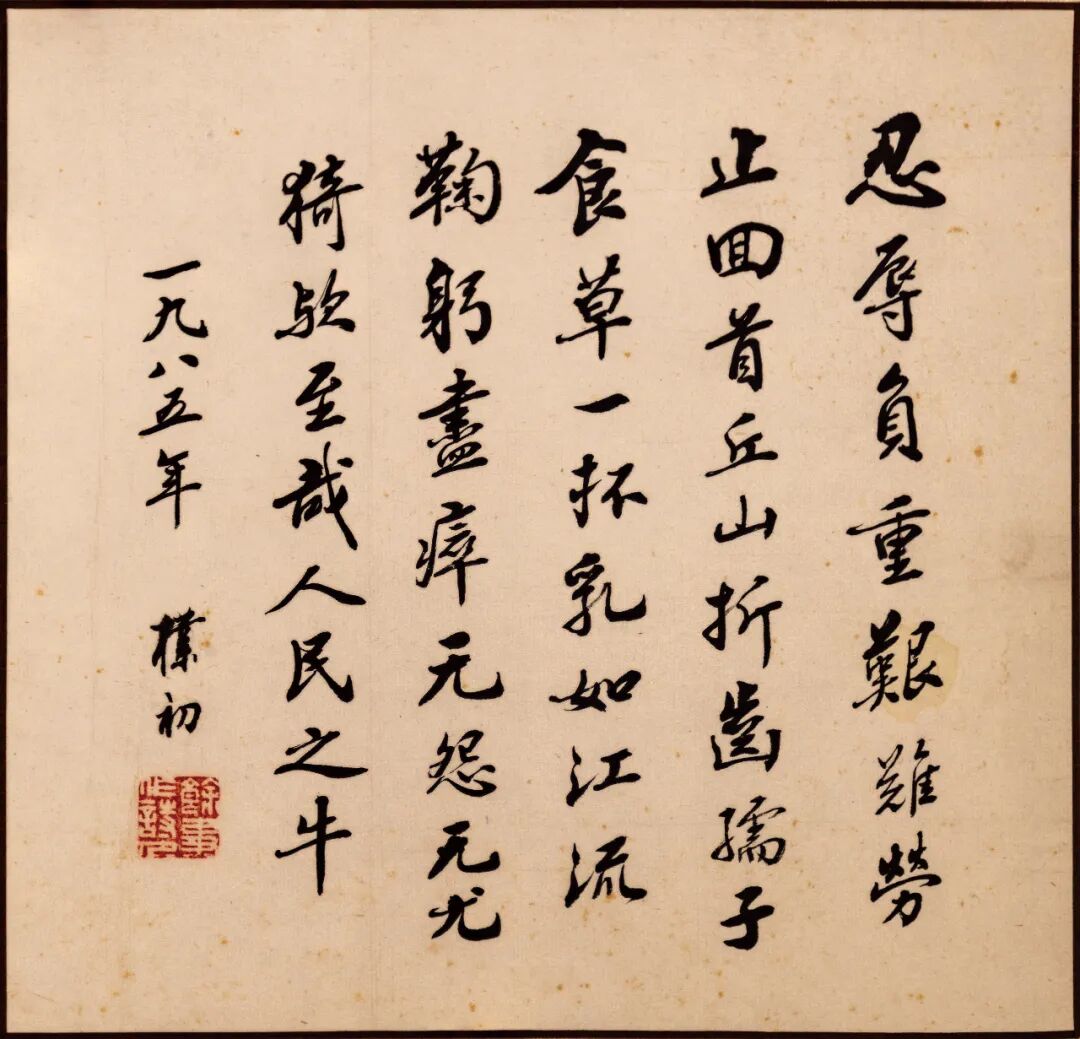 忍辱負重艱難勞
止回首丘山折齒孺子
食草一抔乳如江流
鞠躬盡瘁无怨无尤
猗欤至哉人民之牛
一九八五年 樸初
餘事作詩人